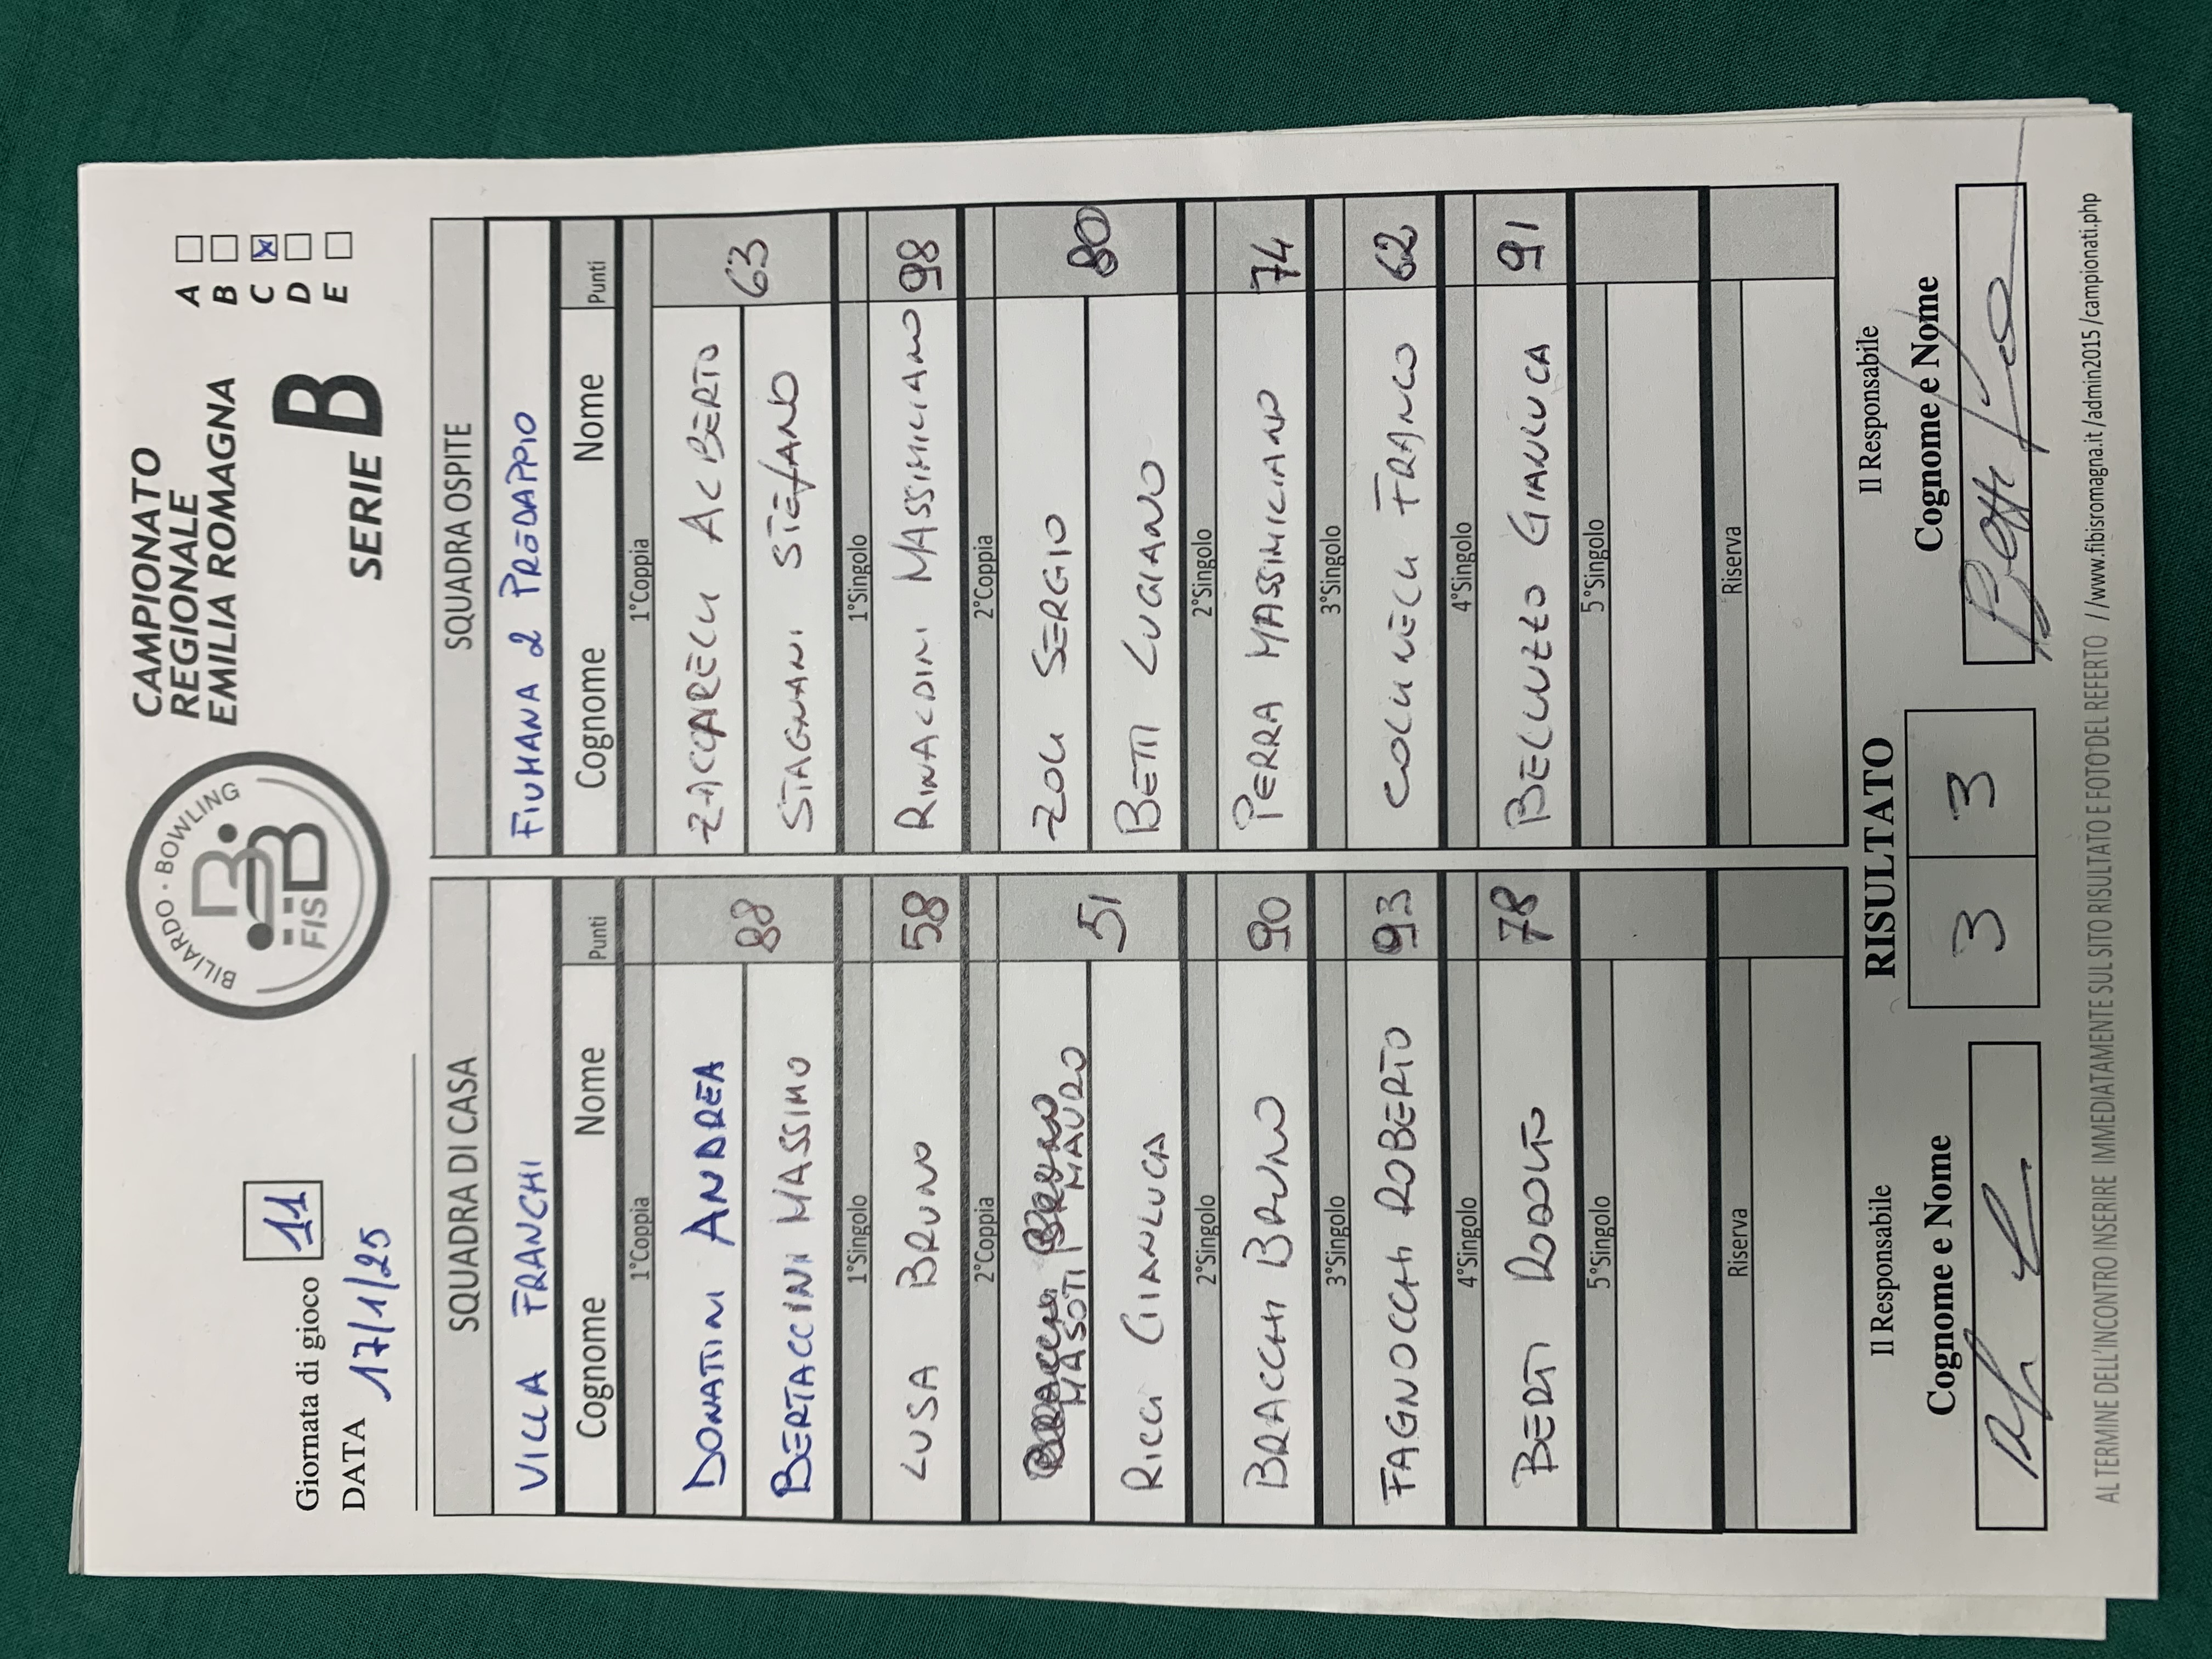 Giornata di gioco 11
DATA 17/1/25
BILIARDO · BOWLING
FISBB
CAMPIONATO
REGIONALE
EMILIA ROMAGNA
SERIE B
A
B
C
D
E
SQUADRA DI CASA
SQUADRA OSPITE
VILLA FRANCHI
FIUMANA 2 PREDAPPIO
Cognome Nome Punti
Cognome Nome Punti
1°Coppia
1°Coppia
DONATTINI ANDREA
ZACCARELLI ALBERTO
88
63
BERTACCINI MASSIMO
STAGNANI STEFANO
1°Singolo
1°Singolo
LUSA BRUNO 58
RINALDINI MASSIMILIANO 98
2°Coppia
2°Coppia
MASOTI MAURO
ZOLI SERGIO
51
80
RICCI GIANLUCA
BETTI LUCIANO
2°Singolo
2°Singolo
BRACCHI BRUNO 90
PERRA MASSIMILIANO 74
3°Singolo
3°Singolo
FAGNOCCHI ROBERTO 93
COLLINELLI FRANCO 62
4°Singolo
4°Singolo
BERTI RODOLFO 78
BELLUZZO GIANLUCA 91
5°Singolo
5°Singolo
Riserva
Riserva
Il Responsabile
RISULTATO
Il Responsabile
Cognome e Nome
3 3
Cognome e Nome
AL TERMINE DELL'INCONTRO INSERIRE IMMEDIATAMENTE SUL SITO RISULTATO E FOTO DEL REFERTO //www.fibisromagna.it/admin2015/campionati.php